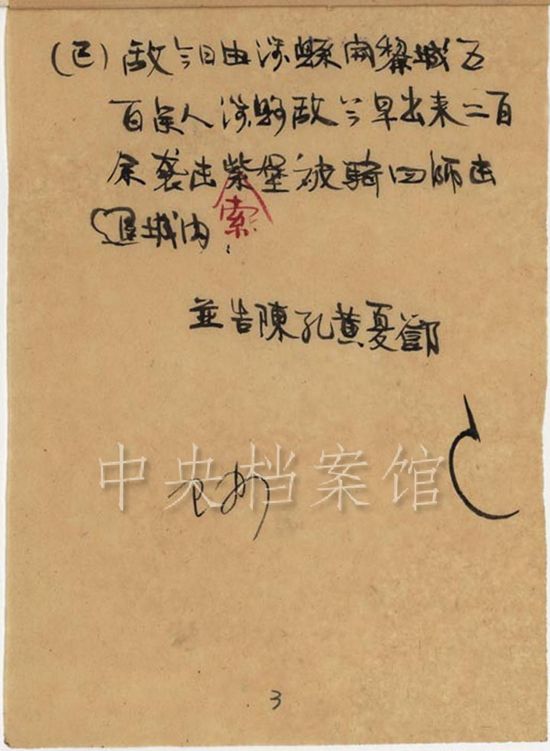 (巳)敌今日由涉縣開黎城五
百余人涉縣敌今早出来二百
余袭击紫堡被騎四师击
退城内
索
並告陳孔黄夏鄧
中央档案馆
3